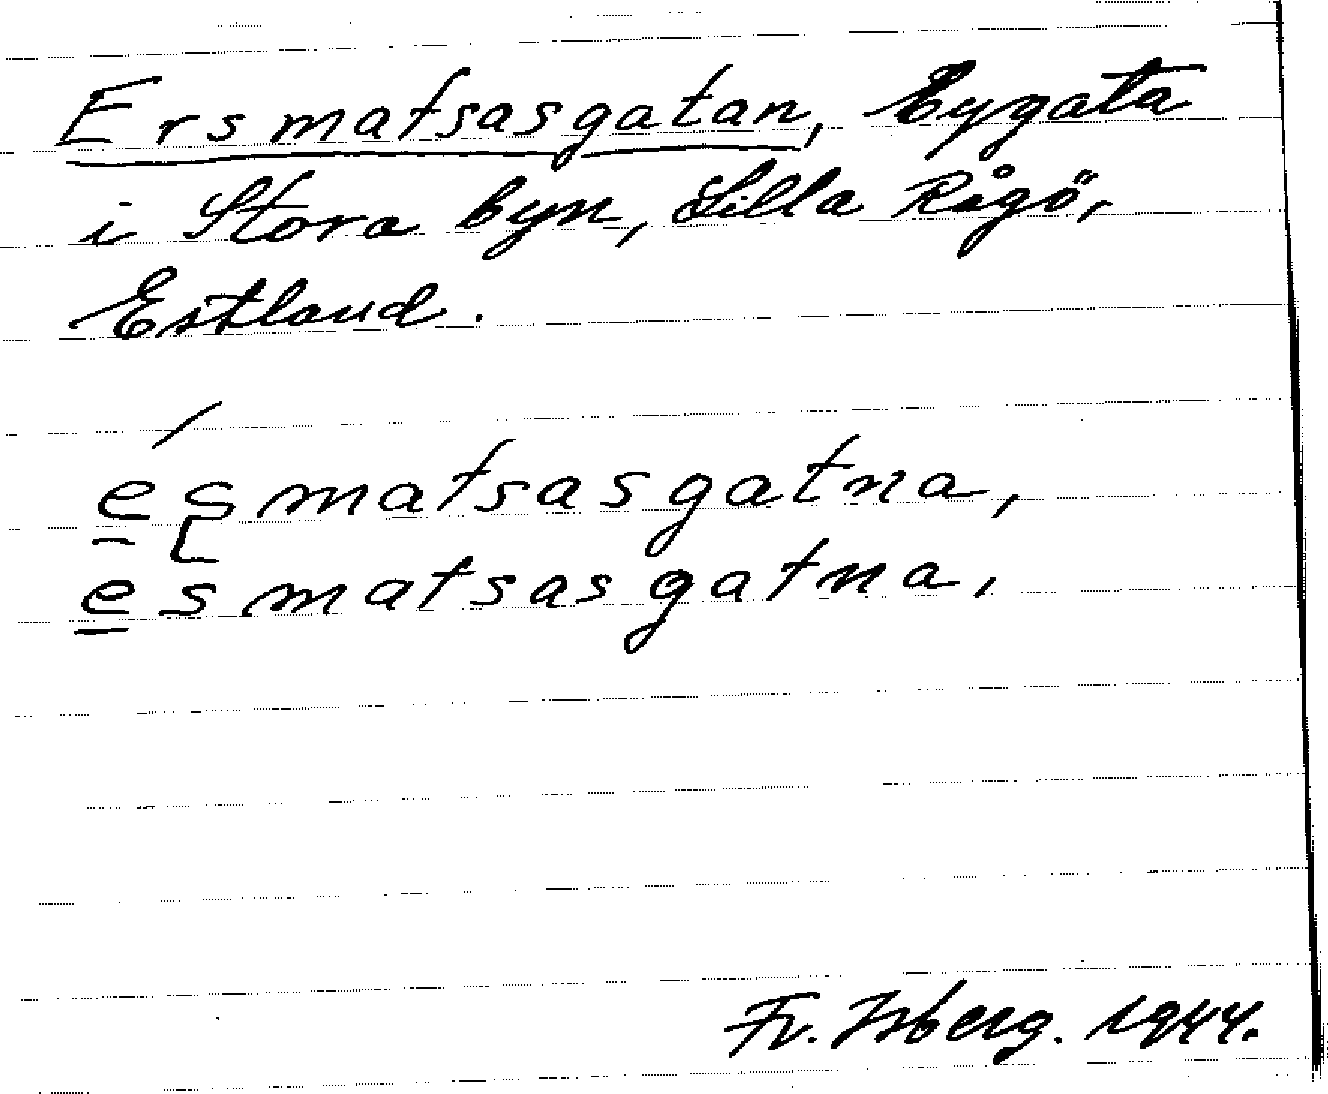 Ersmatsasgatan, bygata
i Stora byn, Lilla Rågö,
Estland.
esmatsasgatna,
esmatsasgatna,
Fr. Isberg. 1944.